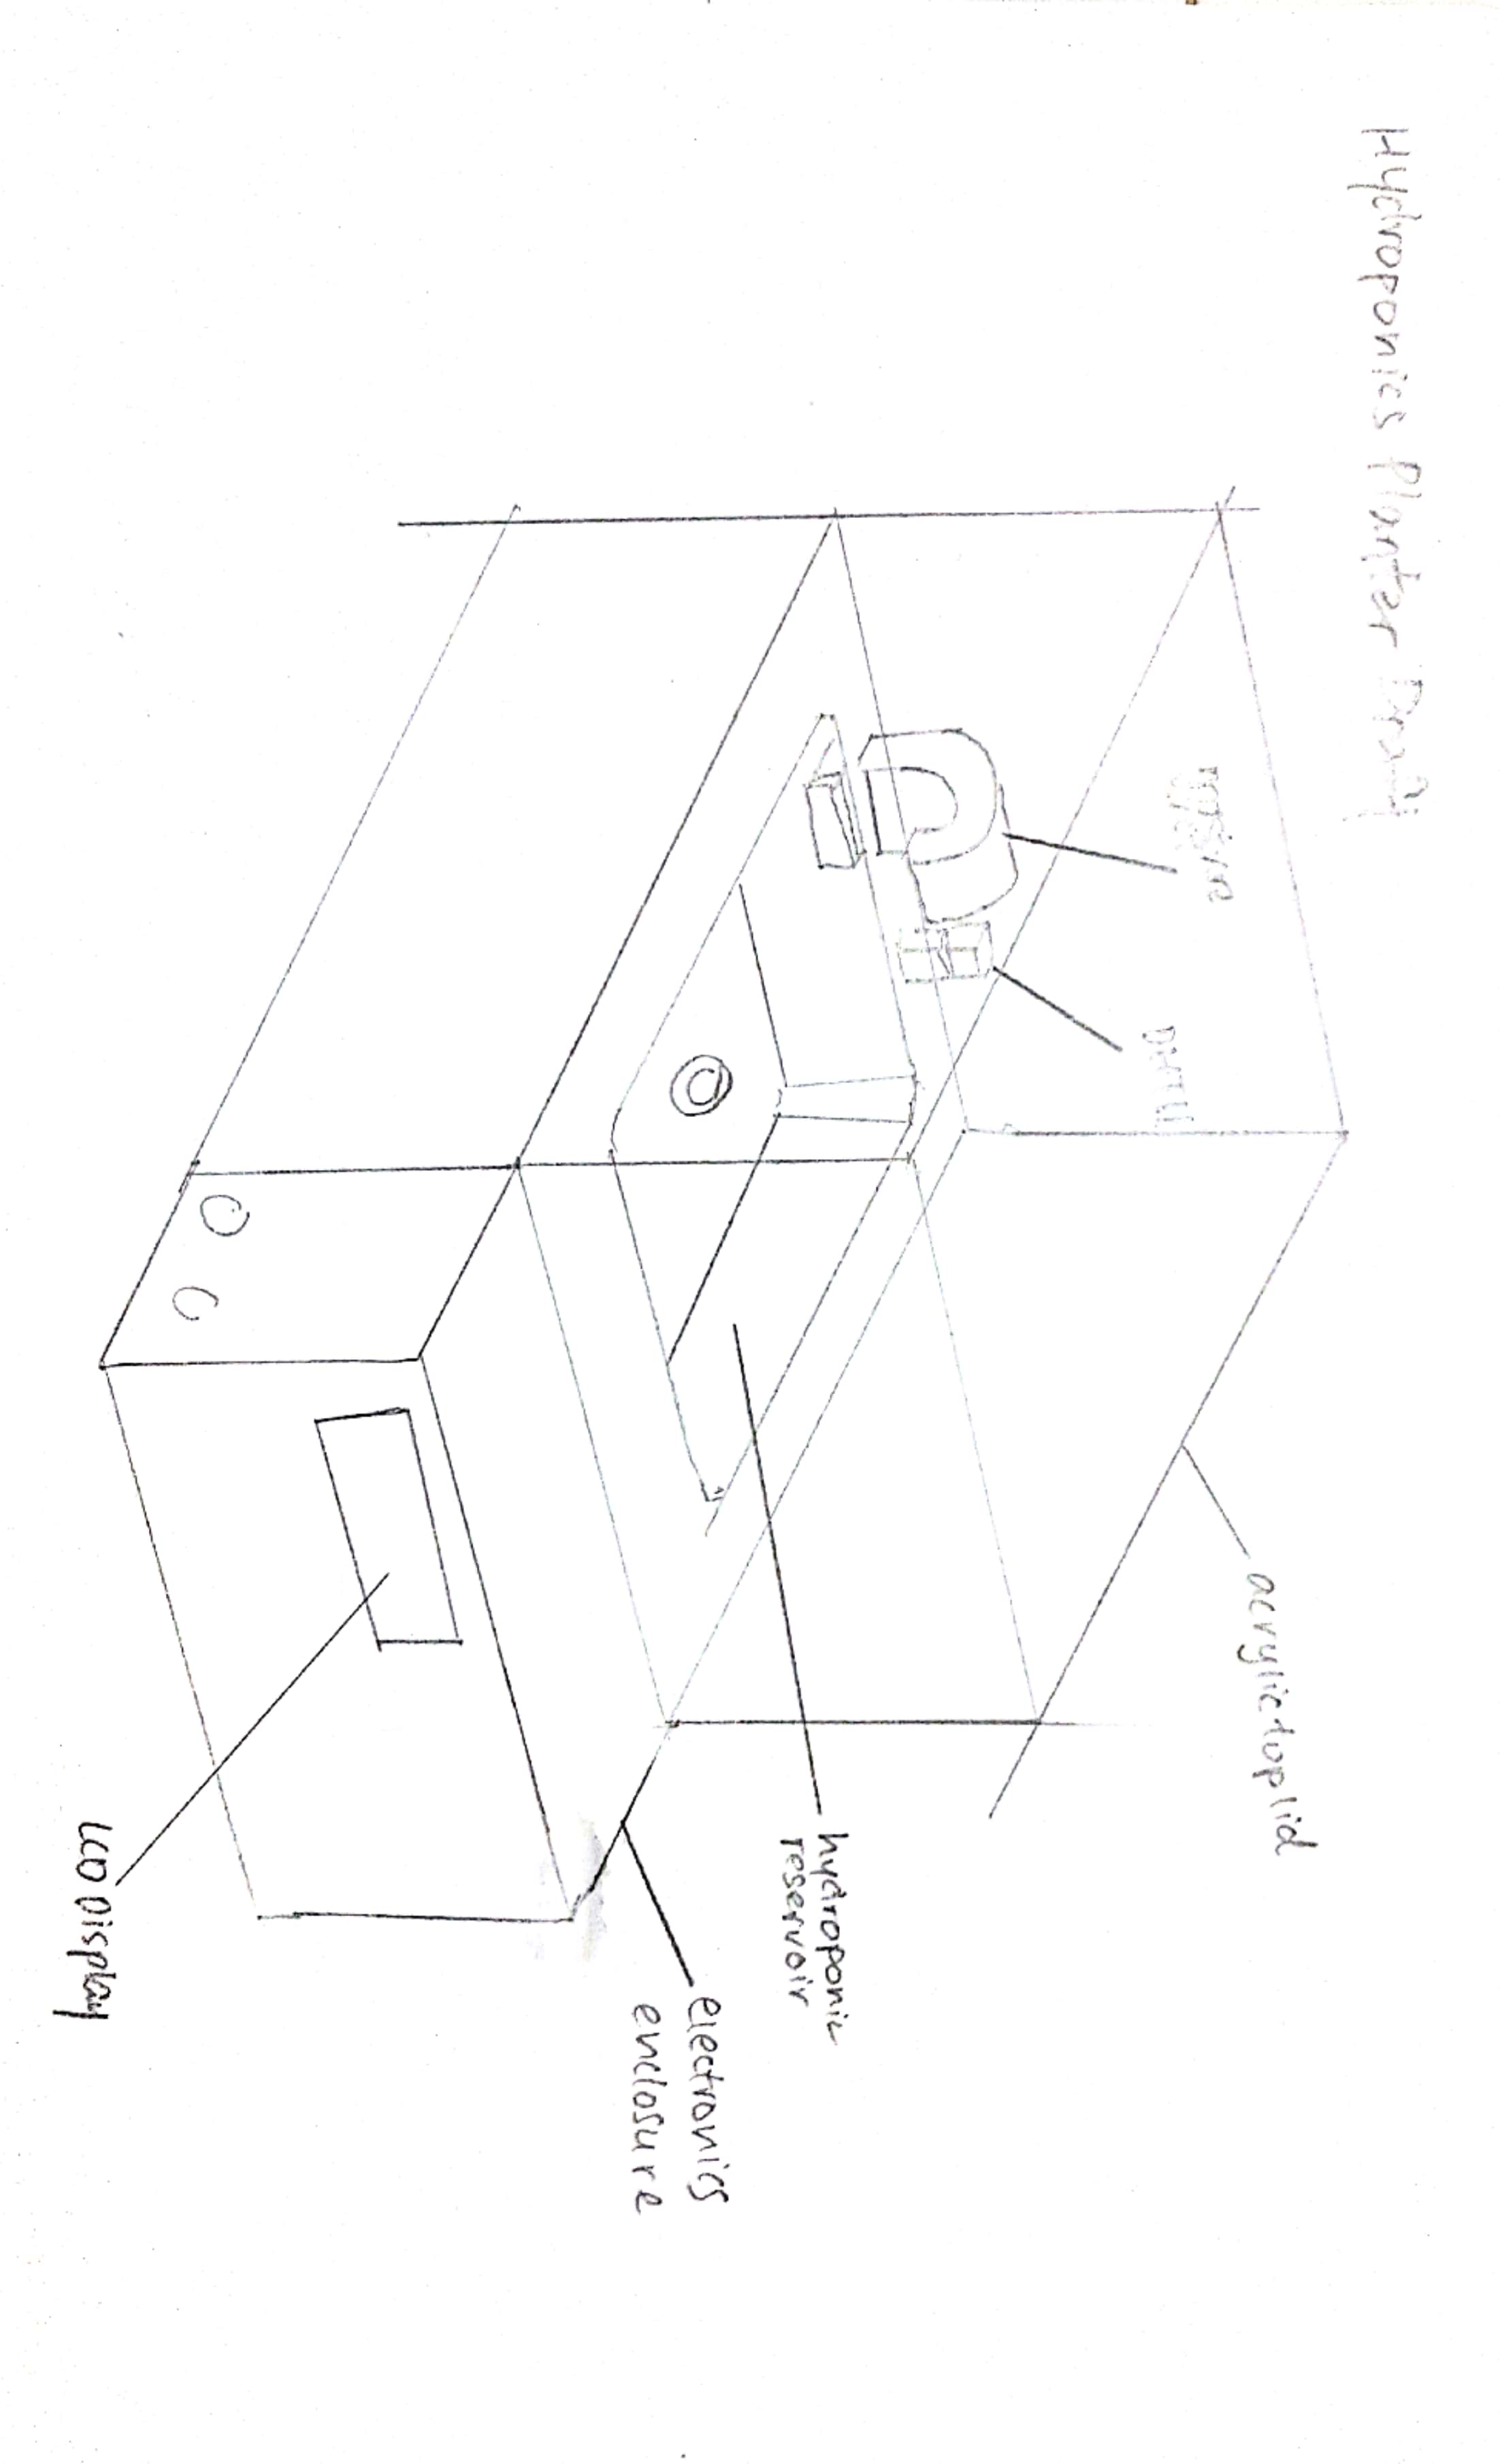 Hydroponics Planter
acrylic top lid
DHT11
hydroponic
reservoir
electronics
enclosure
LCD Display